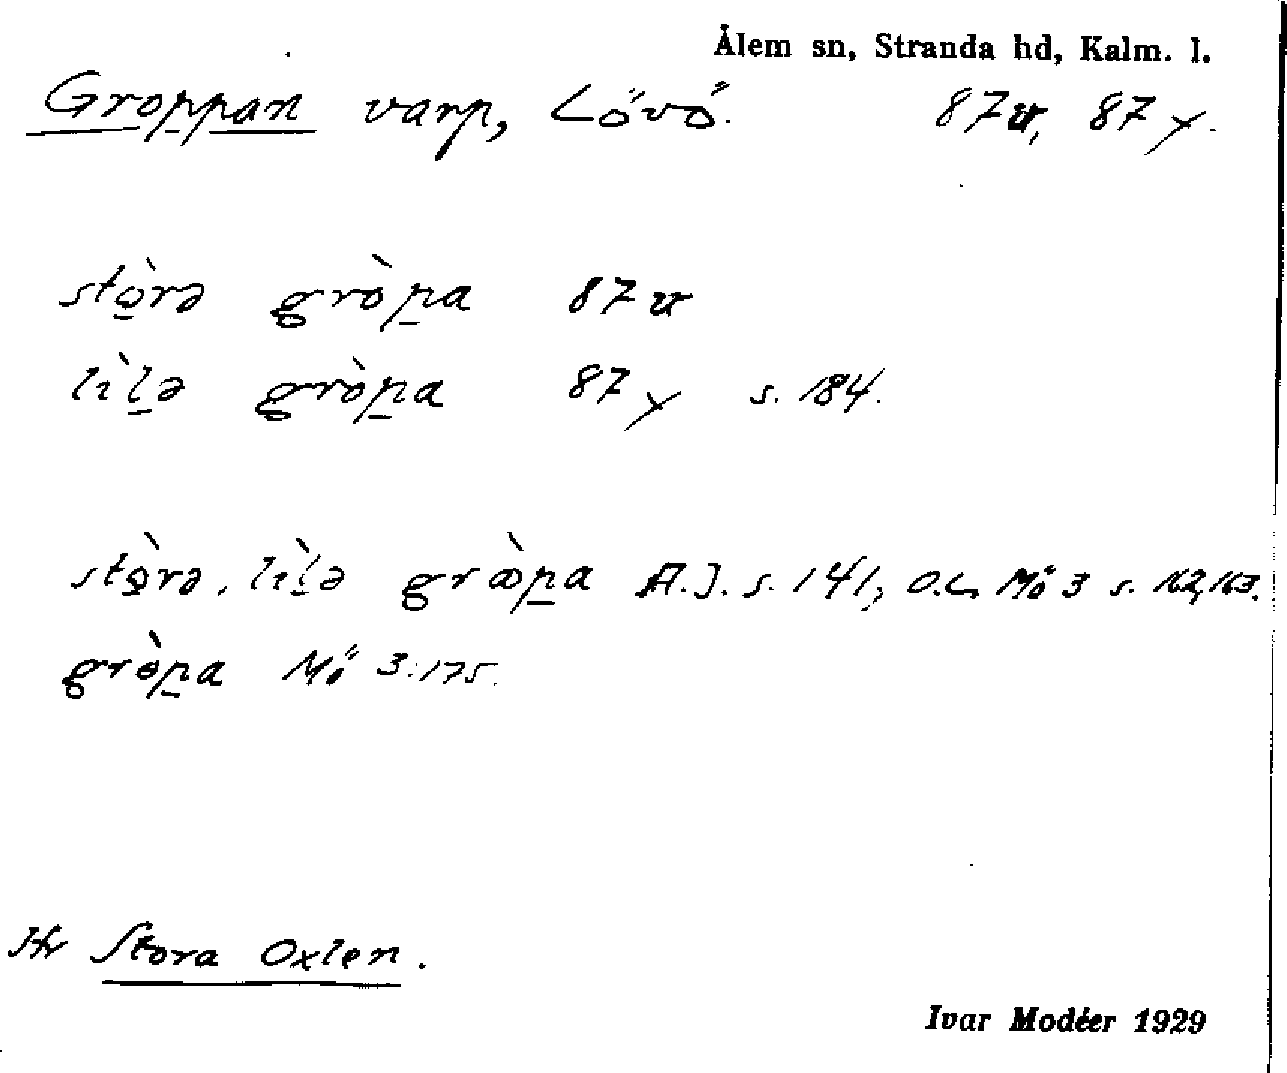 Ålem sn, Stranda hd, Kalm. l.
Groppan varp, Lövö. 87v, 87y.
stò̱rə grò̱pa 87v
lìḻə gròp̱a 87y s. 184.
stò̱rə, lìḻə græ̀p̱a A.J. s. 141, O.L. Mö 3 s. 162, 163.
gròp̱a Mö 3:175.
Stora Oxlen.
Ivar Modéer 1929